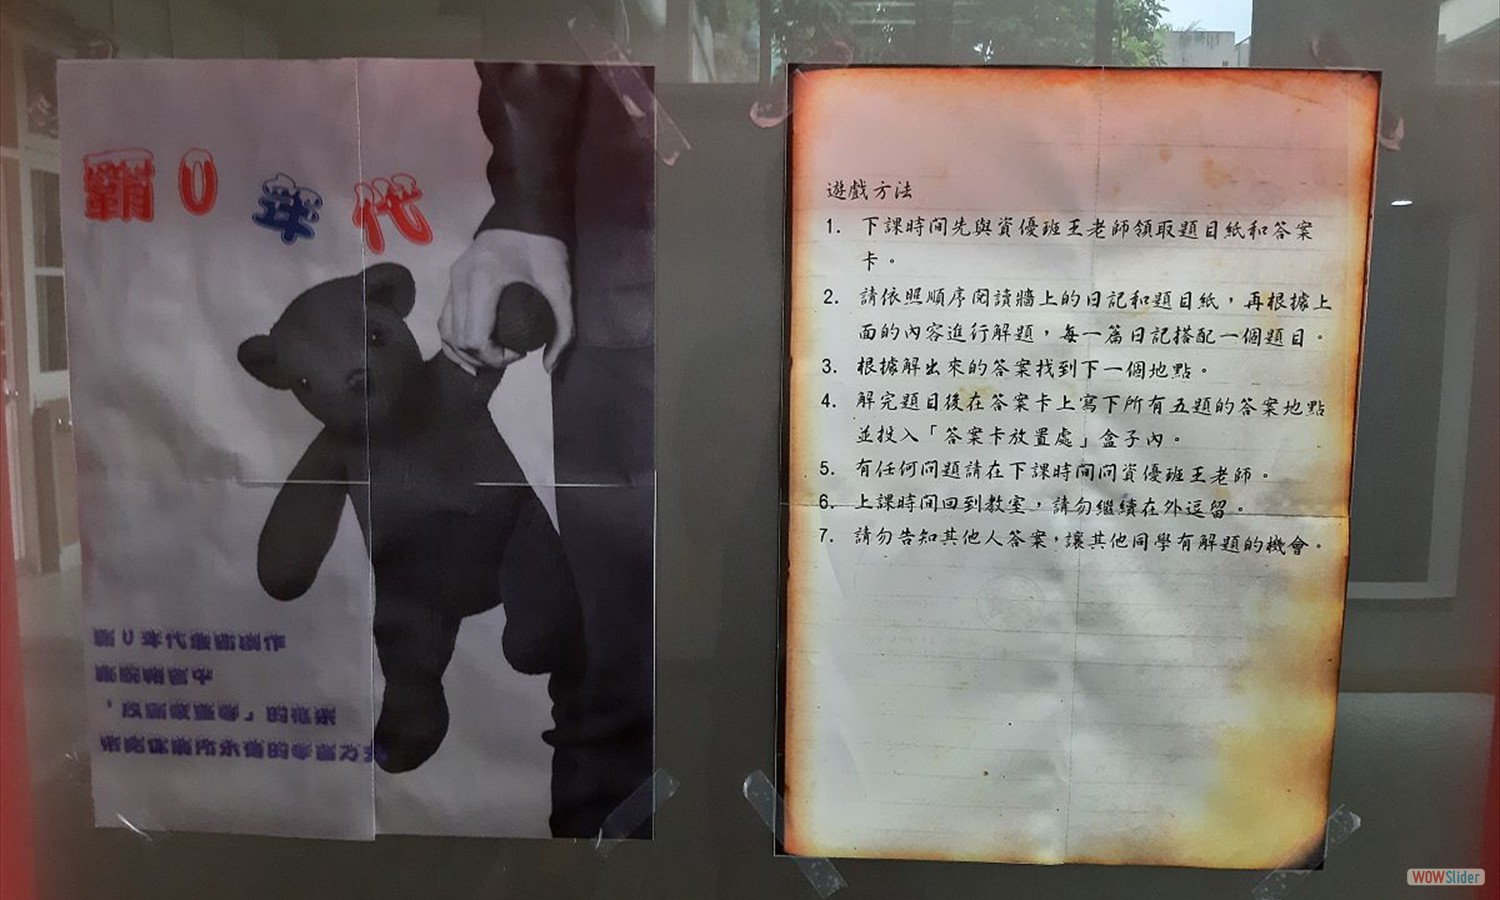 霸0年代
霸0年代
的
遊戲方法
1. 下課時間先與資優班王老師領取題目紙和答案
卡。
2. 請依照順序閱讀牆上的日記和題目紙，再根據上
面的內容進行解題，每一篇日記搭配一個題目。
3. 根據解出來的答案找到下一個地點。
4. 解完題目後在答案卡上寫下所有五題的答案地點
並投入「答案卡放置處」盒子內。
5. 有任何問題請在下課時間問資優班王老師。
6. 上課時間回到教室，請勿繼續在外逗留。
7. 請勿告知其他人答案，讓其他同學有解題的機會。
WOWSlider